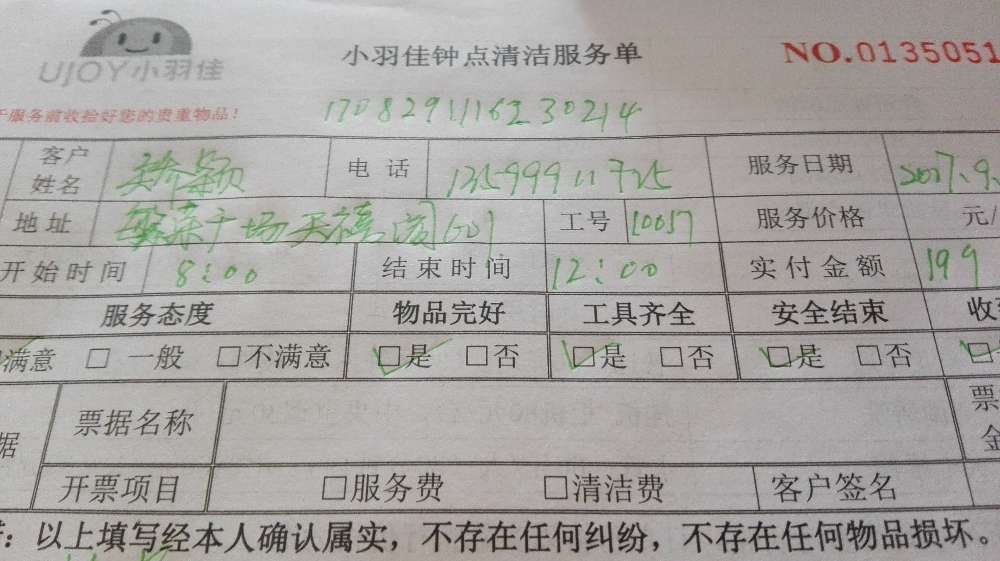 UJOY小羽佳
小羽佳钟点清洁服务单
NO.0135051
服务前收拾好您的贵重物品!
客户姓名 颖 电话 13599911725 服务日期 2017.9.
地址 繁荣广场天禧阁601 工号 10057 服务价格 元/
开始时间 8:00 结束时间 12:00 实付金额 199
服务态度 物品完好 工具齐全 安全结束 收
满意 □ 一般 □不满意 □是 □否 □是 □否 □是 □否
据 票据名称 票
金
开票项目 □服务费 □清洁费 客户签名
:以上填写经本人确认属实,不存在任何纠纷,不存在任何物品损坏。